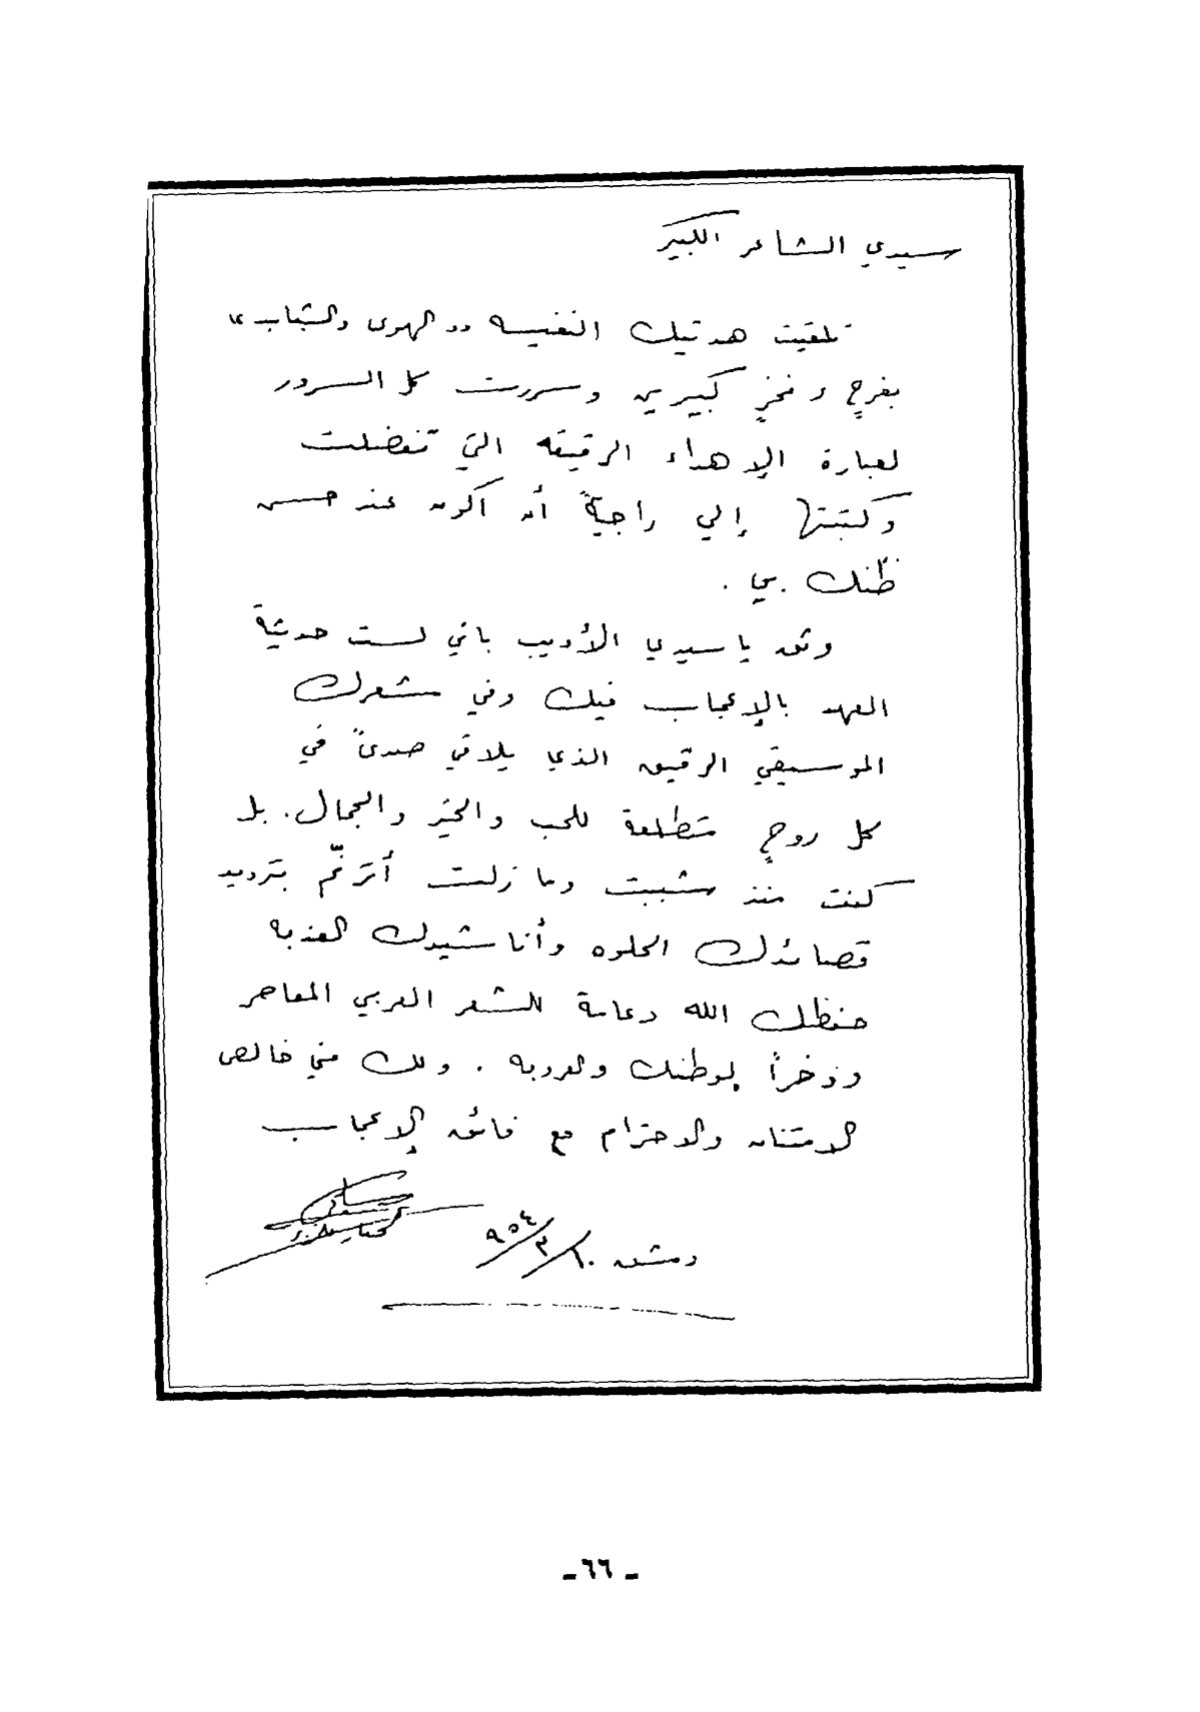 سيدي الشاعر الكبير
تلقيت هديتك النفيسه "الهوى والشباب"
بفرحٍ وفخرٍ كبيرين وسررت كل السرور
لعبارة الإهداء الرقيقه التي تفضلت
وكتبتها إلي راجيةً أن أكون عند حسن
ظنّك بي .
وثق يا سيدي الأديب باني لست حديثة
العهد بالإعجاب فيك وفي شعرك
الموسيقي الرقيق الذي يلاقي صدىً في
كل روحٍ متطلعة للحب والخير والجمال . بل
كنت منذ شببت وما زلت أترنّم بترديد
قصائدك الحلوه وأناشيدك العذبه
حفظك الله دعامة للشعر العربي المعاصر
وذخراً لوطنك والعروبه . ولك مني خالص
الامتنان والاحترام مع فائق الإعجاب
دمشق ١٠/٣/٩٥٤
ـ ٦٦ ـ